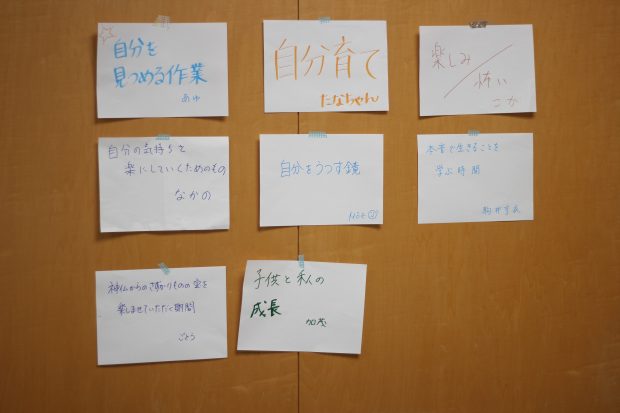 自分を
見つめる作業
あゆ
自分育て
たなちゃん
楽しみ
怖い
こが
自分の気持ちを
楽にしていくためのもの
なかの
自分をうつす鏡
本音で生きることを
学ぶ時間
神仏からのさずかりものの宝を
楽しませていただく期間
ごとう
子供と私の
成長
加茂